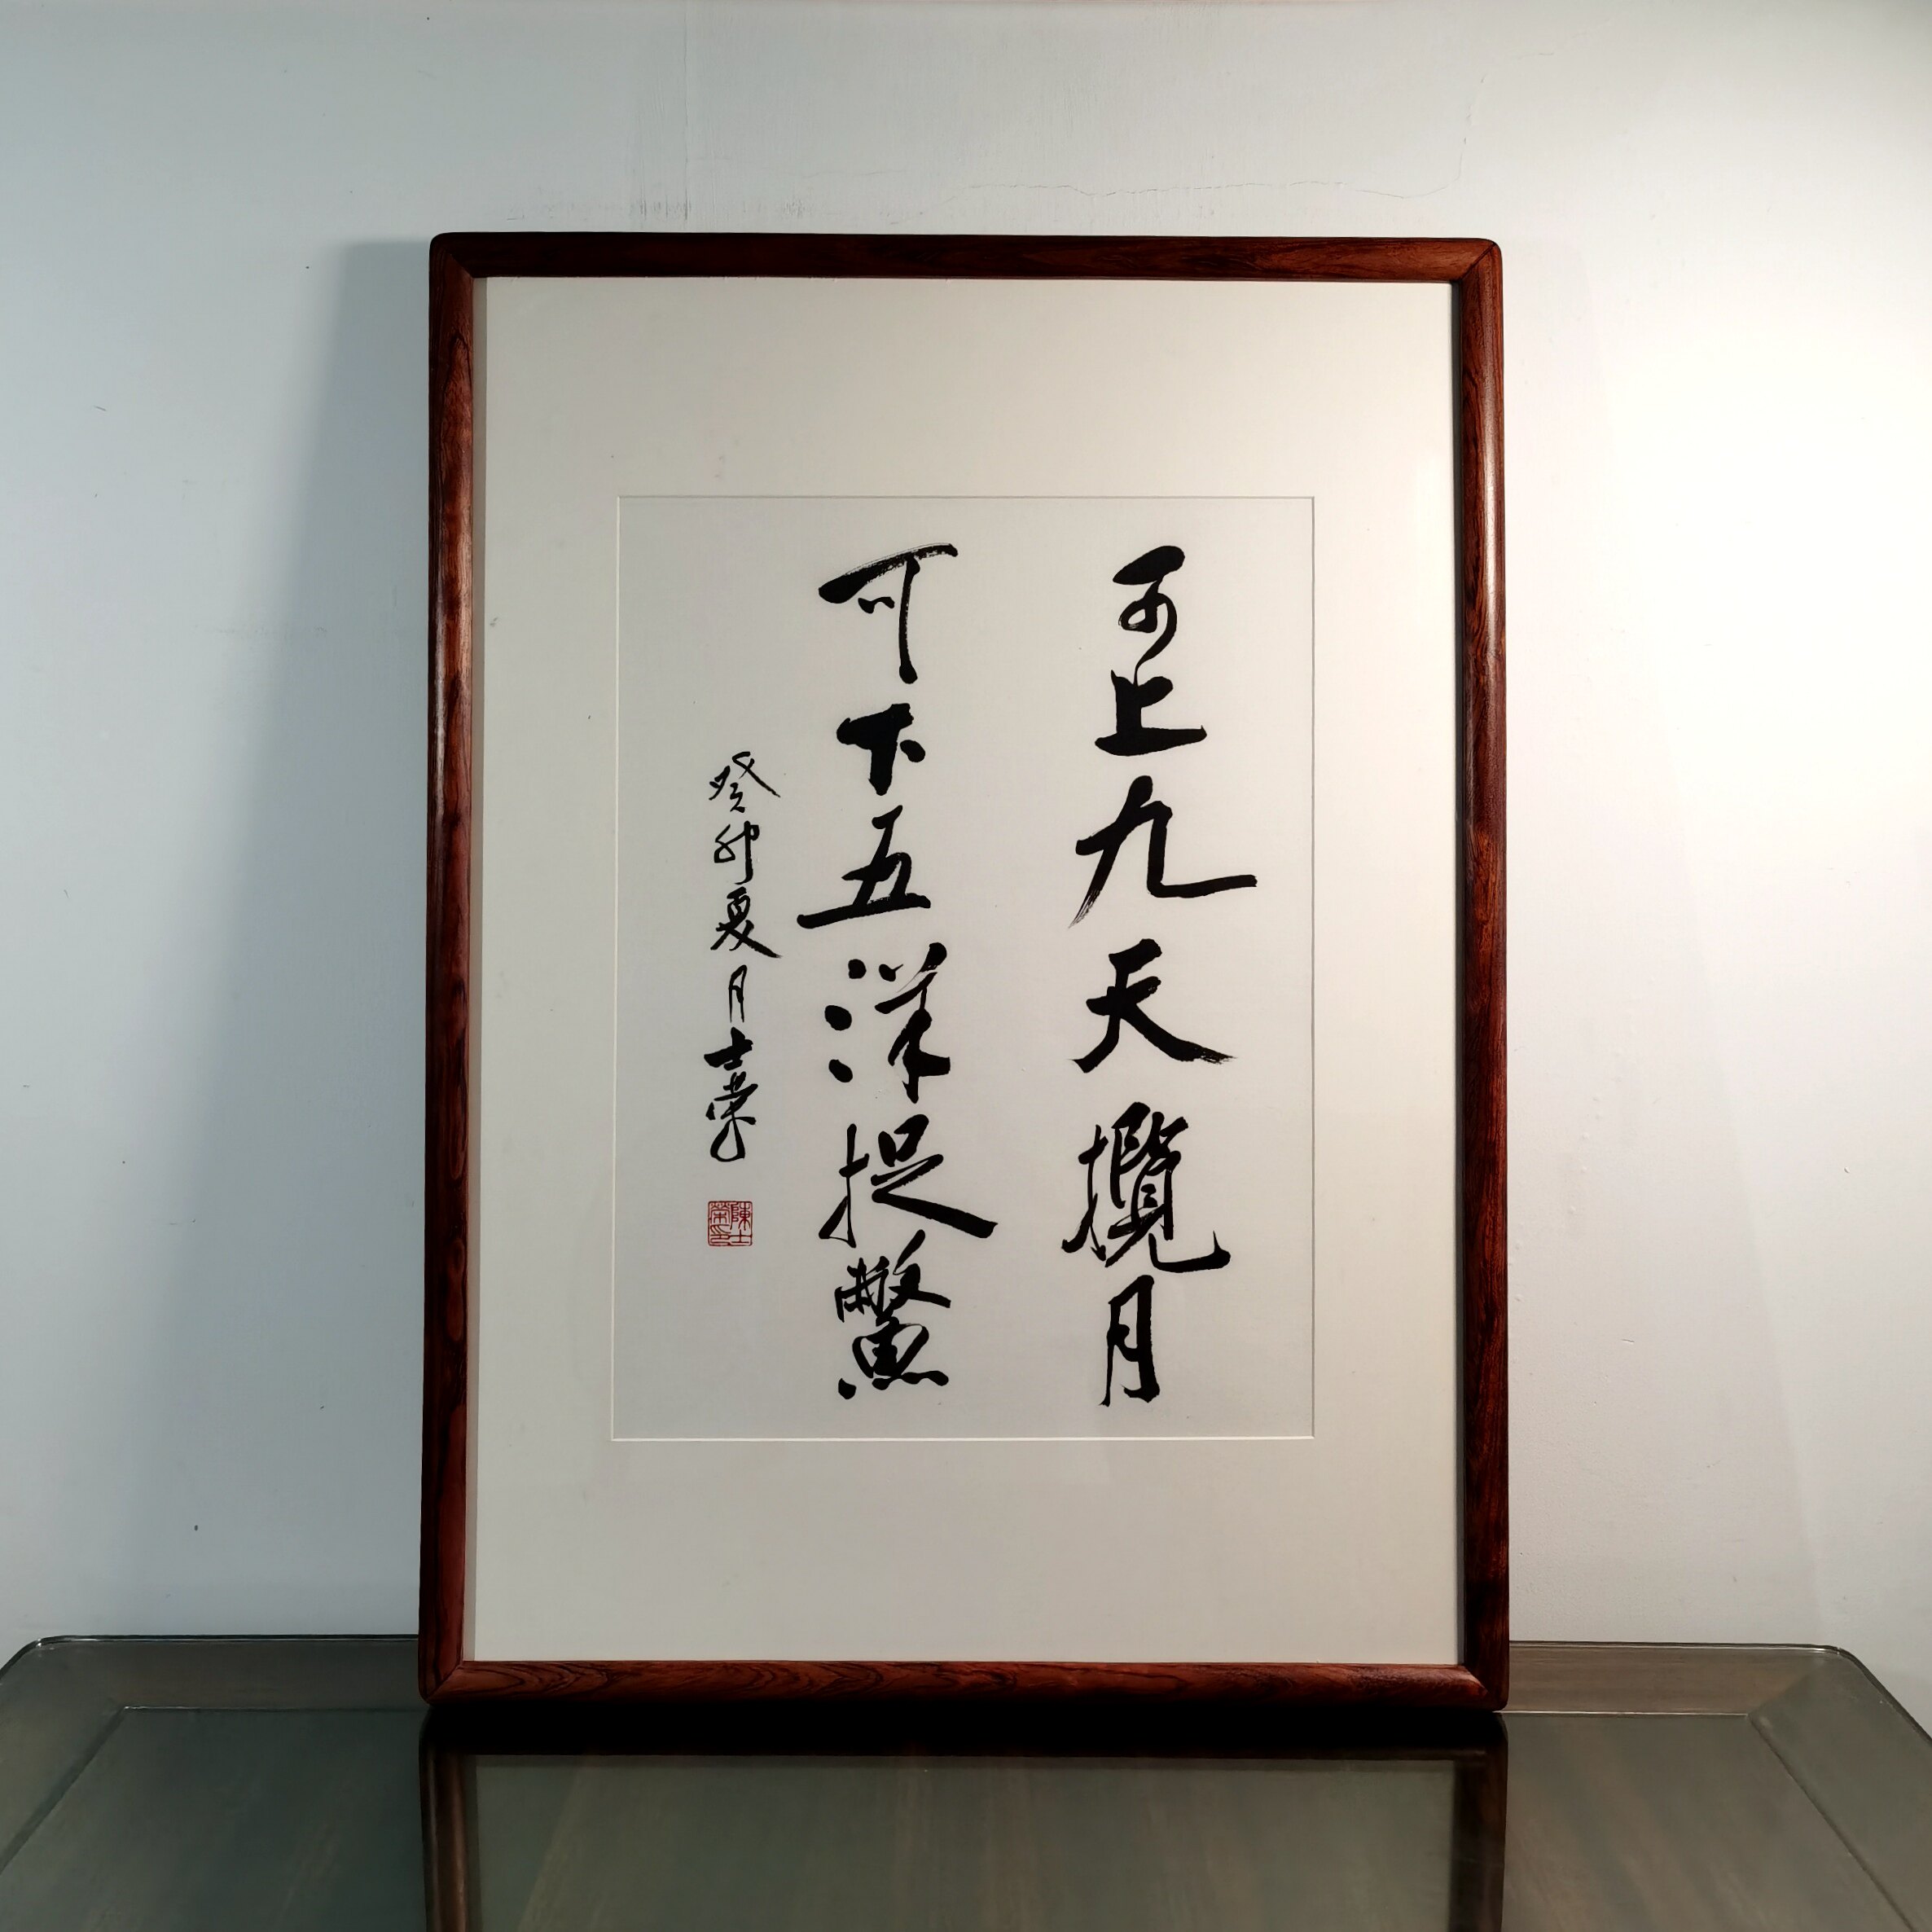 可上九天攬月
可下五洋捉鱉
癸卯夏月士榮
陳士榮印